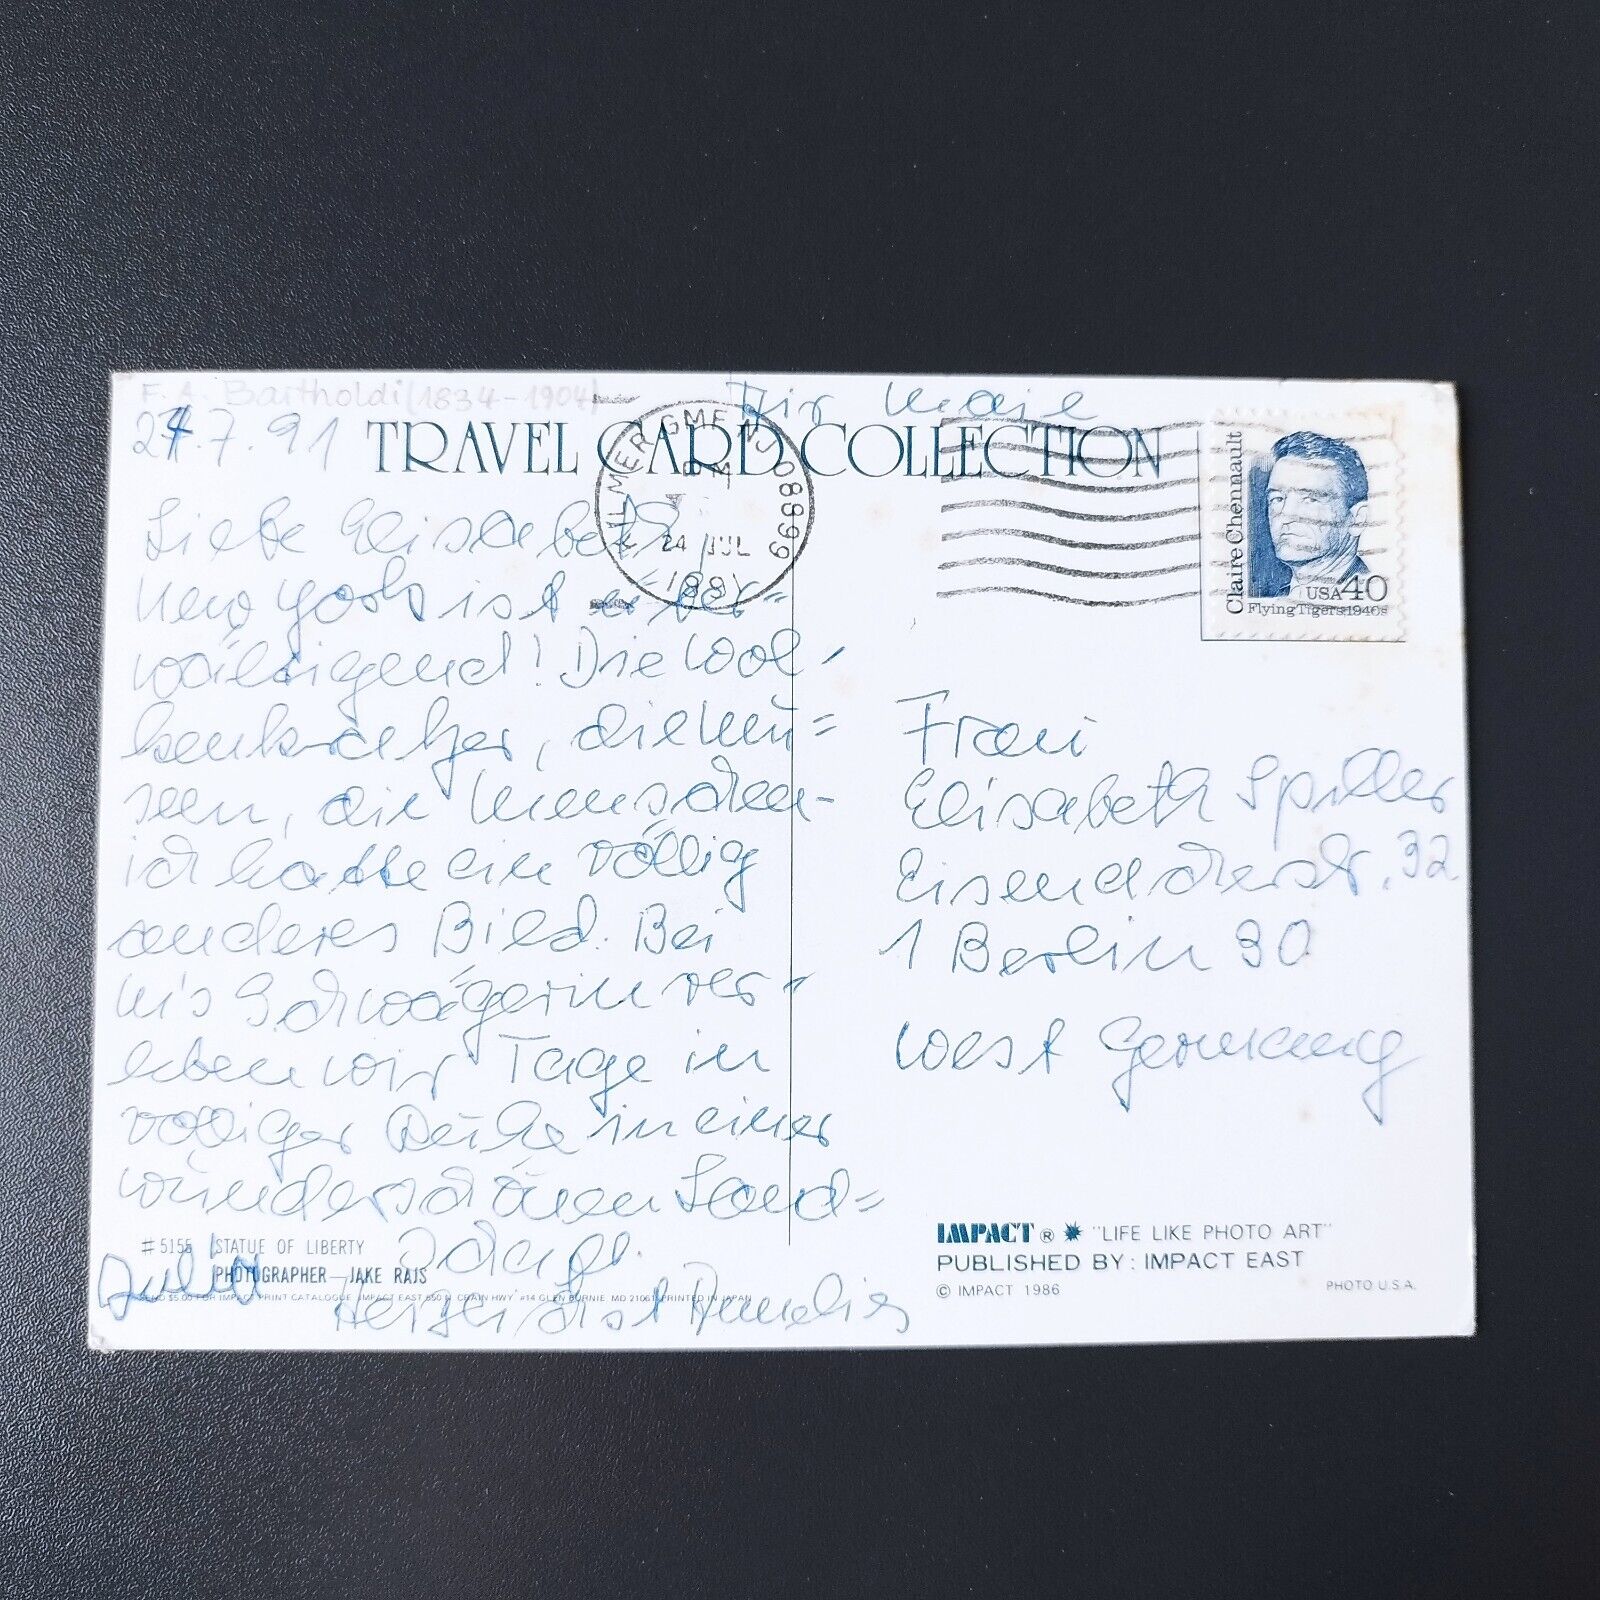 F. A. Bartholdi (1834-1904)
24.7.91
TRAVEL CARD COLLECTION
KILMER GMF NJ 08899
PM
24 JUL
1991
Claire Chennault
USA 40
Flying Tigers 1940s
Liebe Elisabeth,
New York ist über=
wältigend! Die Wol-
kenkratzer, die Mu=
seen, die Menschen-
ich hatte ein völlig
anderes Bild. Bei
Schwägerin ver-
leben wir Tage in
völliger Ruhe in einer
wunderschönen Land=
schaft.
Herzlichst
Julia
Frau
Elisabeth Spiller
Eisenacherstr. 32
1 Berlin 30
West Germany
#5155 STATUE OF LIBERTY
PHOTOGRAPHER—JAKE RAJS
SEND $5.00 FOR IMPACT PRINT CATALOGUE IMPACT EAST 650 N. CRAIN HWY #14 GLEN BURNIE, MD 21061 PRINTED IN JAPAN
IMPACT ® "LIFE LIKE PHOTO ART"
PUBLISHED BY: IMPACT EAST
© IMPACT 1986
PHOTO U.S.A.